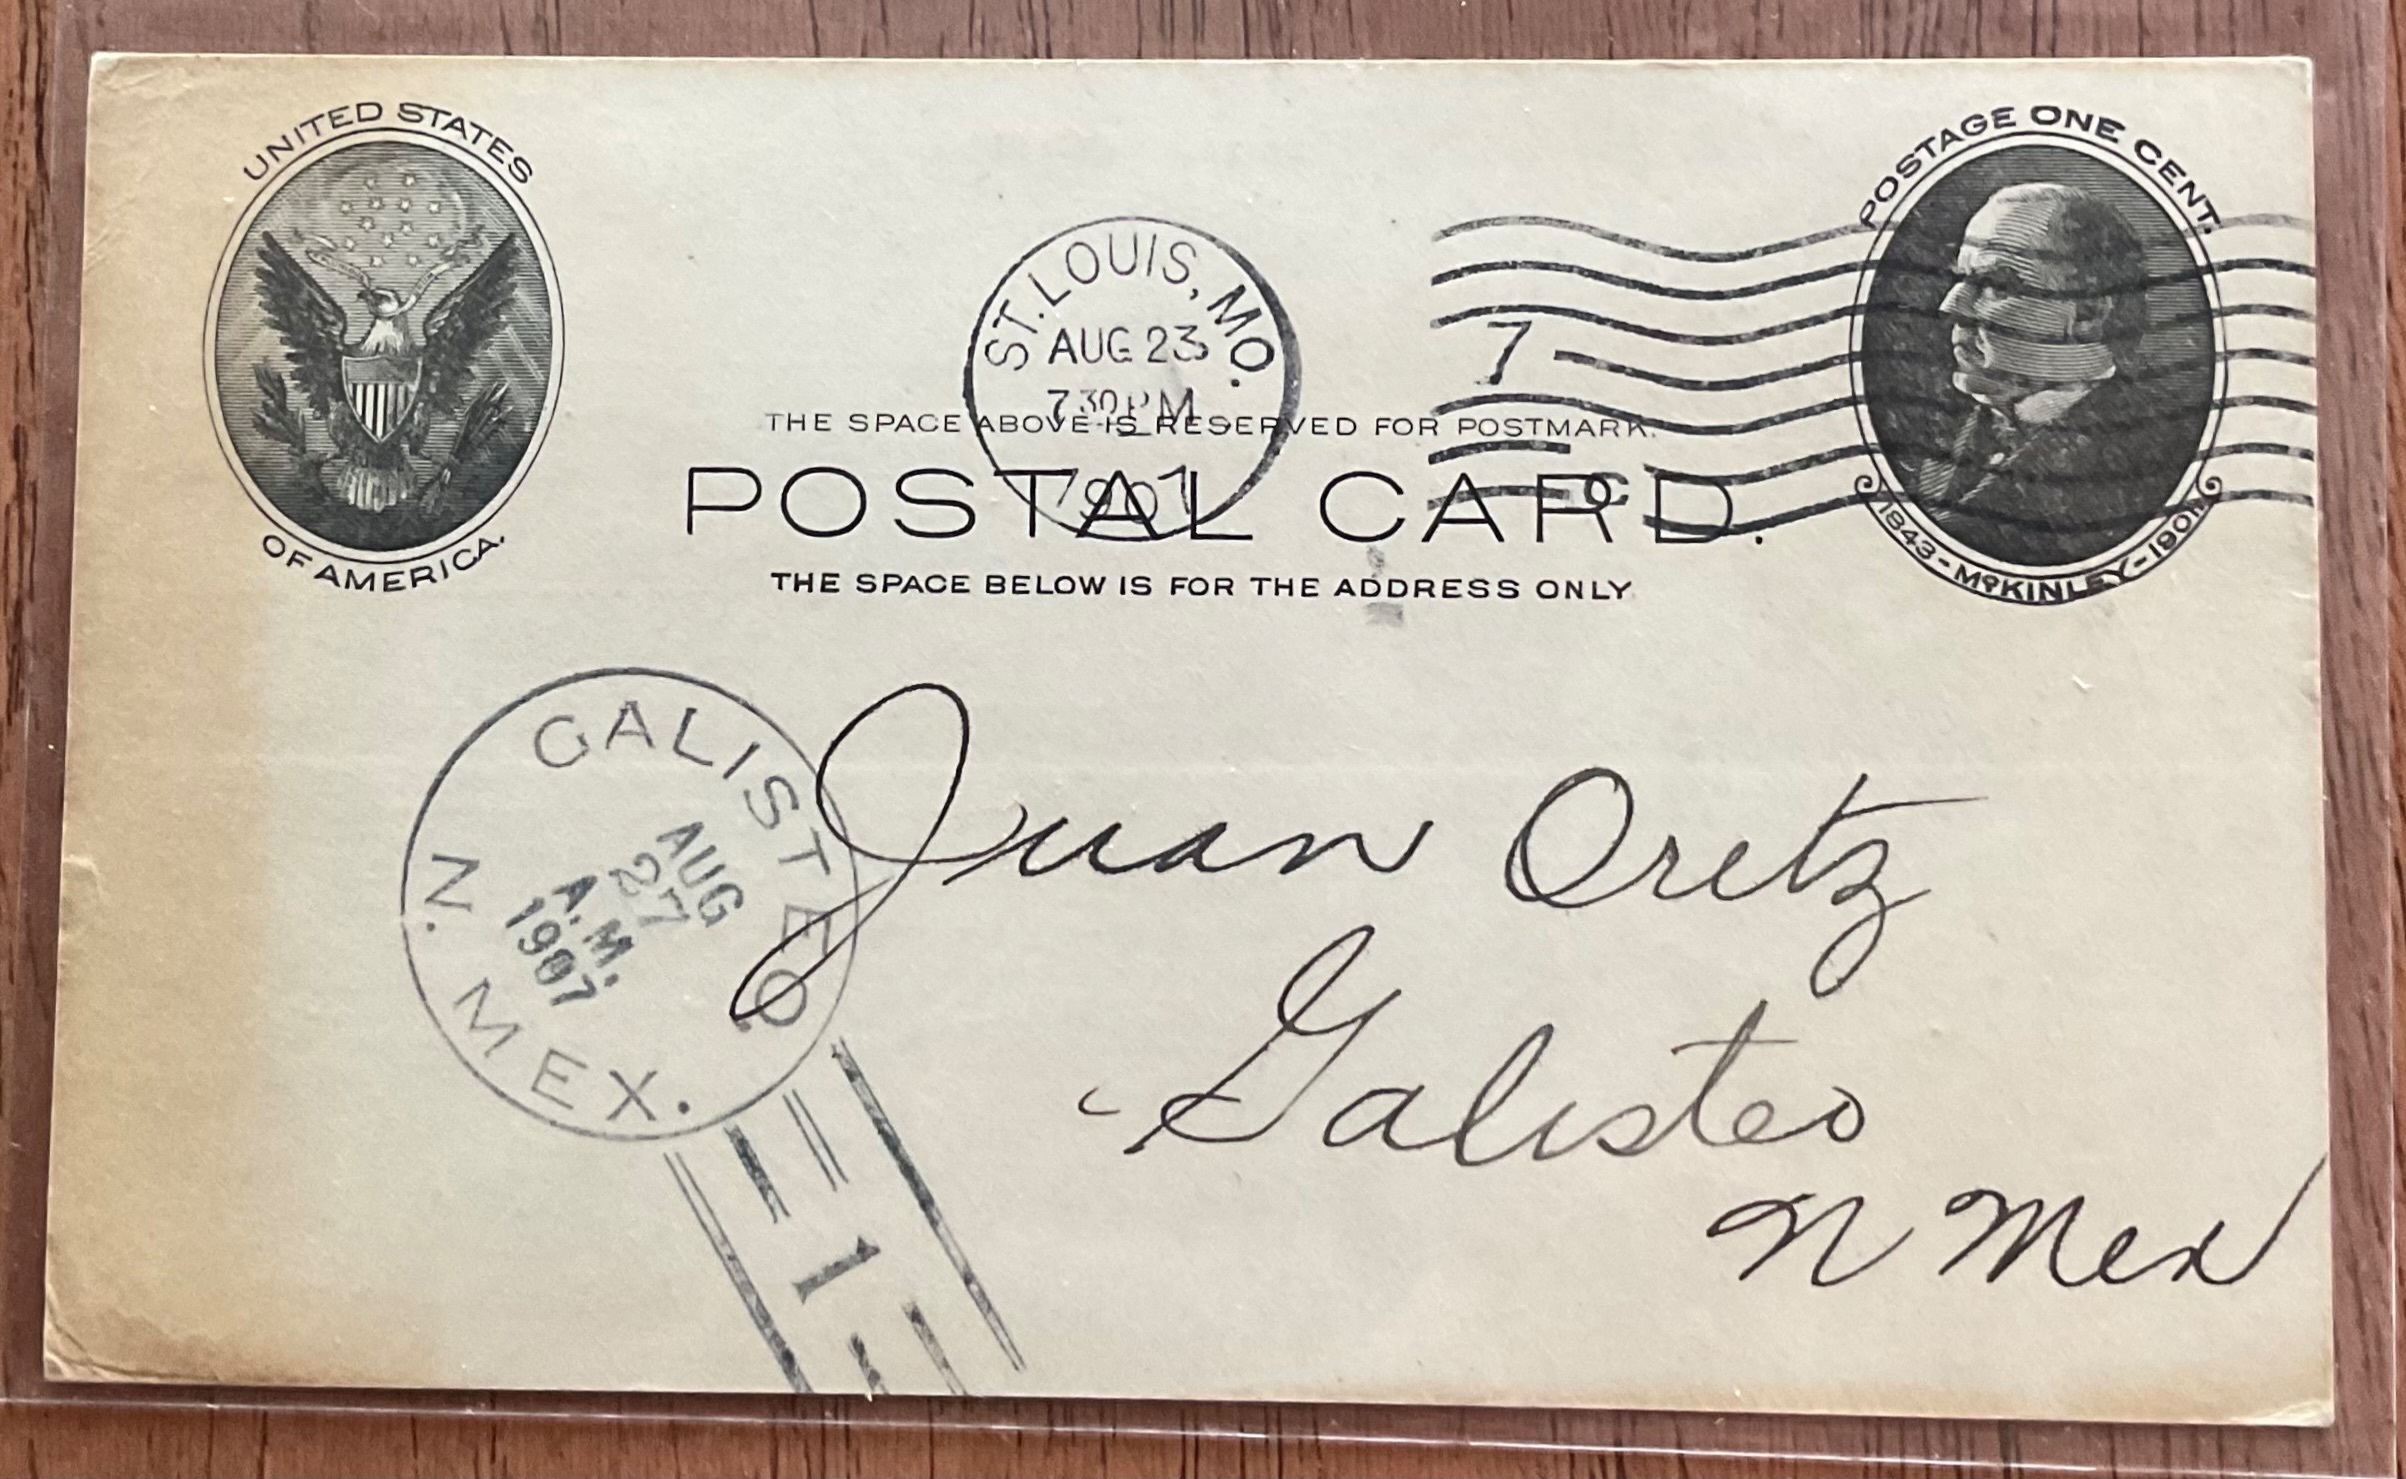 UNITED STATES
OF AMERICA.
POSTAGE ONE CENT.
1843 - McKINLEY - 1901
ST. LOUIS, MO.
AUG 23
7 30 PM
1907
7
C
THE SPACE ABOVE IS RESERVED FOR POSTMARK.
POSTAL CARD.
THE SPACE BELOW IS FOR THE ADDRESS ONLY
GALISTEO.
N. MEX.
AUG
27
A.M.
1907
1
Juan Oretz
Galisteo
N Mex